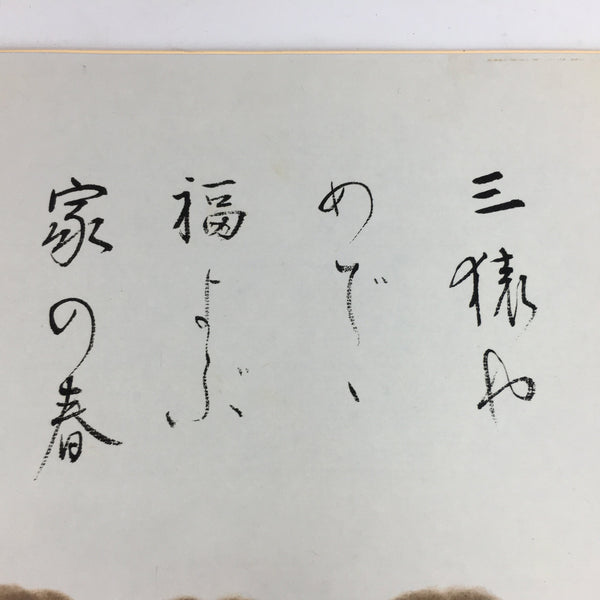 三猿や
めでゝ
福よぶ
家の春